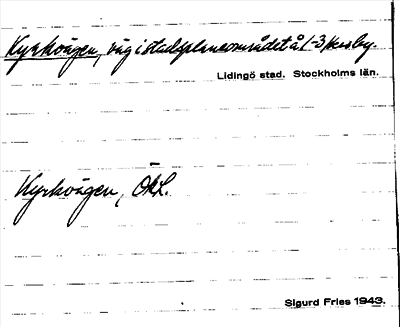 Kyrkvägen, väg i stadsplaneområdet å 1-3 Hersby.
Lidingö stad. Stockholms län.
Kyrkvägen, ÖkL.
Sigurd Fries 1943.